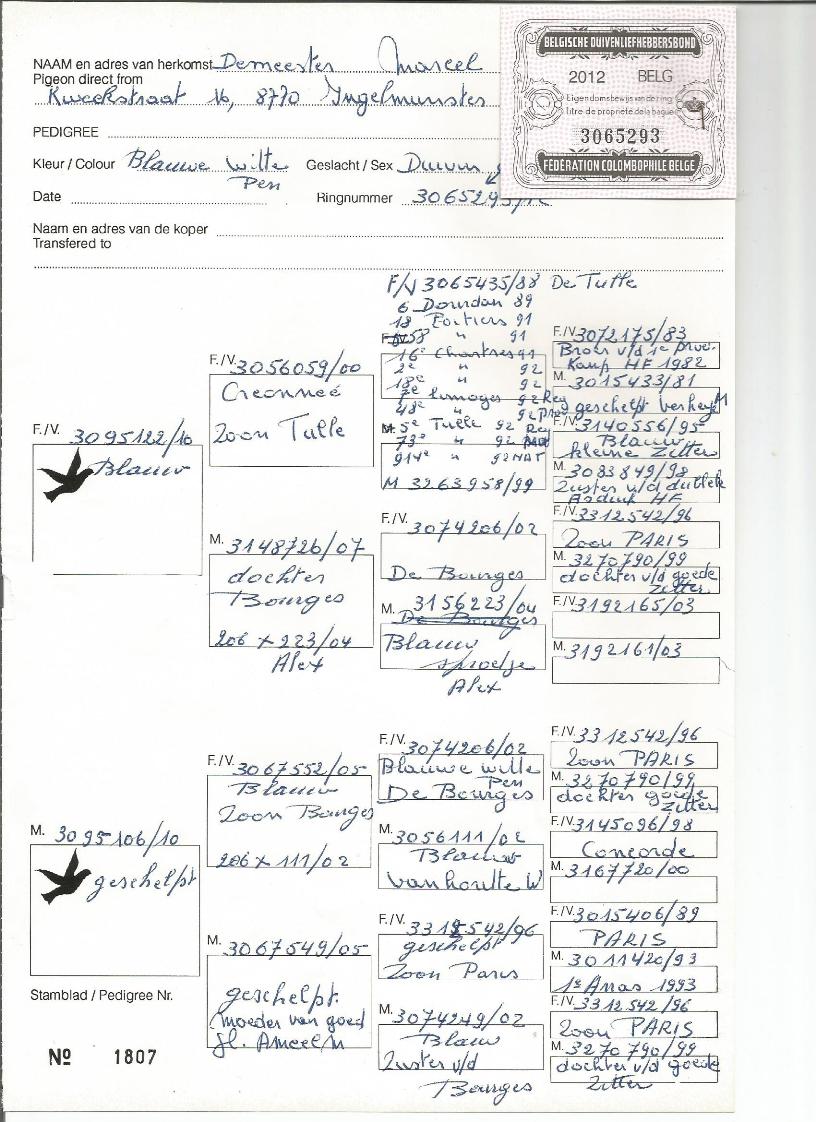 NAAM en adres van herkomst Demeester Marcel
Pigeon direct from
Kweekstraat 16, 8770 Ingelmunster
PEDIGREE
Kleur / Colour Blauwe witte
Pen
Geslacht / Sex Duivin
Date
Ringnummer 3065293/12
Naam en adres van de koper
Transfered to
BELGISCHE DUIVENLIEFHEBBERSBOND
2012 BELG
Eigendomsbewijs van de ring
Titre de propriété de la bague
3065293
FÉDÉRATION COLOMBOPHILE BELGE
F./V. 3095122/10
Blauw
F./V. 3056059/00
Creonneé
Zoon Tulle
M. 3148726/07
dochter
Bourges
206 x 223/04
Alex
F/V 3065435/88 De Tulle
6 Dourdan 89
18 Poitiers 91
58 " 91
16e Chartres 91
2e " 92
18e " 92
7e limoges 92 Reg
48e " 92 Prov
5e Tulle 92 Reg
73e " 92
914e " 92 NAT
M 3263958/99
F./V. 3074206/02
De Bourges
M. 3156223/04
De Bourges
Blauw
Alex
F./V. 3072175/83
Broer v/d 1e prov.
Kamp HF 1982
M. 3015433/81
geschelpt
F./V. 3140556/95
Blauw
kleine Zitter
M. 3083849/98
Zuster v/d
HF
F./V. 3312542/96
Zoon PARIS
M. 3270790/99
dochter v/d goede
Zitter
F./V. 3192165/03
M. 3192161/03
M. 3095106/10
geschelpt
F./V. 3067552/05
Blauw
Zoon Bourges
206 x 111/02
M. 3067549/05
geschelpt.
moeder van goed
F./V. 3074206/02
Blauwe witte
Pen
De Bourges
M. 3056111/02
Blauw
Vanhoutte W
F./V. 3312542/96
geschelpt
Zoon Paris
M. 3074249/02
Blauw
Zuster v/d
Bourges
F./V. 3312542/96
Zoon PARIS
M. 3270790/99
dochter goede
Zitter
F./V. 3145096/98
Concorde
M. 3167720/00
F./V. 3015406/89
PARIS
M. 3011420/93
1e Arras 1993
F./V. 3312542/96
Zoon PARIS
M. 3270790/99
dochter v/d goede
Zitter
Stamblad / Pedigree Nr.
No 1807